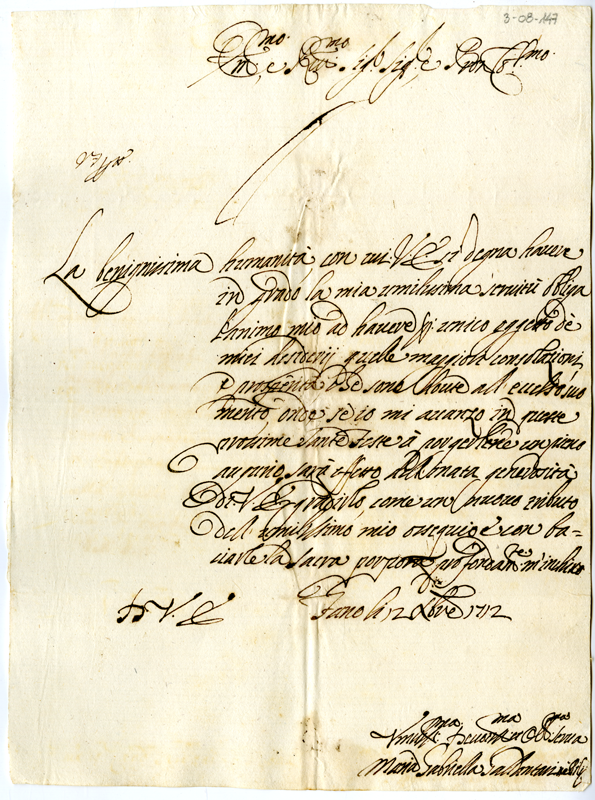 3-08-147
Em.mo e Rev.mo Sig.r Sig.r e Pron Col.mo
La benignissima humanità con cui V.E. si degna havere
in grado la mia umilissima servitù obliga
l'animo mio ad havere p unico oggetto dè
miei desiderij quelle maggiori consolazioni,
e prosperità che sono dovute all eccelso suo
merito, onde se io mi avanzo in queste
prossime Sante Feste à porgerlene un pieno
augurio, sarà effetto dell innata generosità
di V.E. gradirlo come un nuovo tributo
del umilissimo mio ossequio e con ba=
ciarle la sacra porpora profondam.te m'inchino
Fano li 12 Xbre 1712
D V. E.
Umiliss.ma Devotis.ma Obl.ma Serva
Maria Gabriella